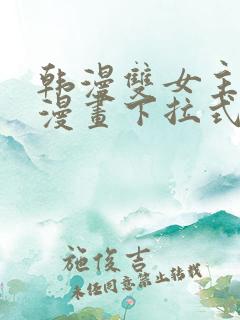 韩漫雙女主
漫畫下拉式
施俊吉
未经同意禁止转载